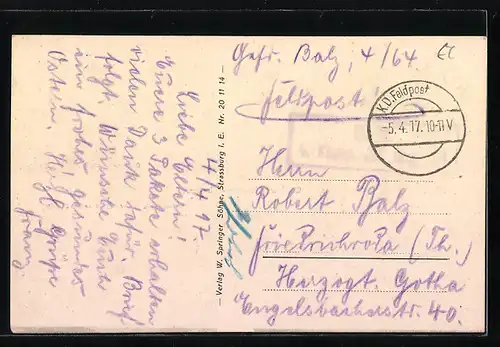 4/4 17.
Liebe Eltern!
Euere 3 Pakete erhalten
vielen Dank dafür. Brief
folgt. Wünsche Euch
ein frohes gesundes
Ostern. Hzl. Grüße
Franz
— Verlag W. Springer Söhne, Strassburg i. E. Nr. 20 11 14 —
Gefr. Balz, 4/64.
Feldpost!
K.D. Feldpost
-5.4.17. 10-11 V
Herrn
Robert Balz
Friedrichroda (Th.)
Herzogt. Gotha
Engelsbacherstr. 40.